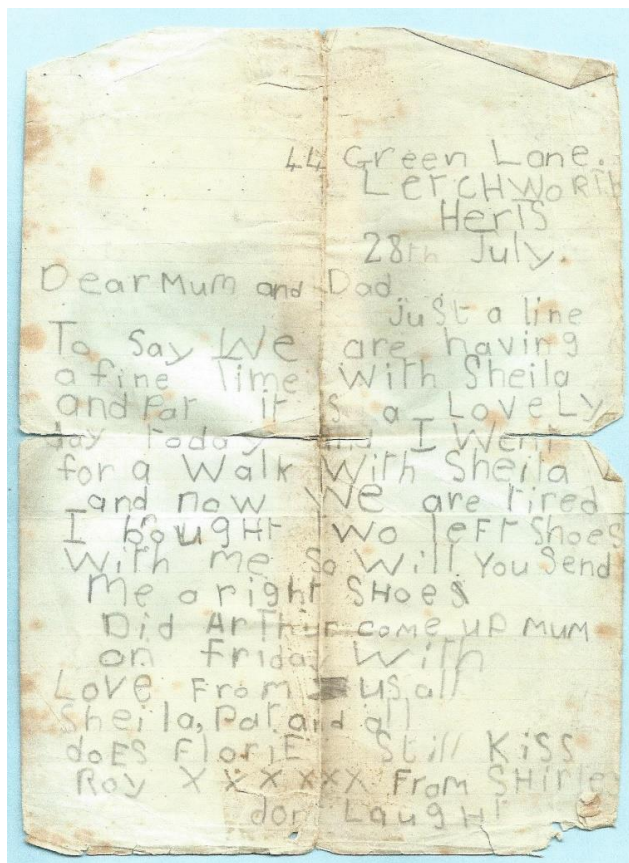 44 Green Lane.
LETCHWORTH
HerTS
28th July.
Dear Mum and Dad
Just a line
To Say We are having
a fine Time With Sheila
and Pat it S a LoveLy
day Today and I Went
for a Walk With Sheila
and now We are Tired
I bougHT Two lefT Shoes
With me So Will You Send
Me a righT SHoes
Did ArThur come up MUM
on friday With
Love From us all
Sheila, Pat and all
doES FloriE Still KiSS
Roy X X X X X X From SHirle
don Laugh!